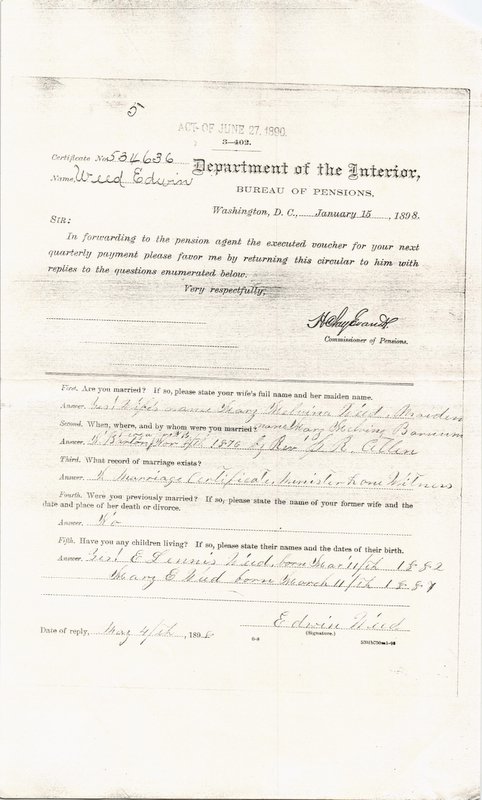 5
ACT OF JUNE 27, 1890.
3—402.
Certificate No. 534636
Department of the Interior,
Name, Weed Edwin
BUREAU OF PENSIONS,
Washington, D. C., January 15, 1898.
SIR:
In forwarding to the pension agent the executed voucher for your next
quarterly payment please favor me by returning this circular to him with
replies to the questions enumerated below.
Very respectfully,
H Clay Evans
Commissioner of Pensions.
First. Are you married? If so, please state your wife's full name and her maiden name.
Answer. Yes! Wife's name Mary Melvina Weed. Maiden
name Mary Melvina Barnum
Second. When, where, and by whom were you married?
Answer. 1876 by Rev! R. Allen
Third. What record of marriage exists?
Answer. A Marriage Certificate. Minister & one Witness
Fourth. Were you previously married? If so, please state the name of your former wife and the
date and place of her death or divorce.
Answer. No
Fifth. Have you any children living? If so, please state their names and the dates of their birth.
Answer. Yes! E Dennis Weed, born Mar 11th 1882
Mary E Weed born March 11th 1887
Edwin Weed
Date of reply, May 4th, 1898
(Signature.)
6-3